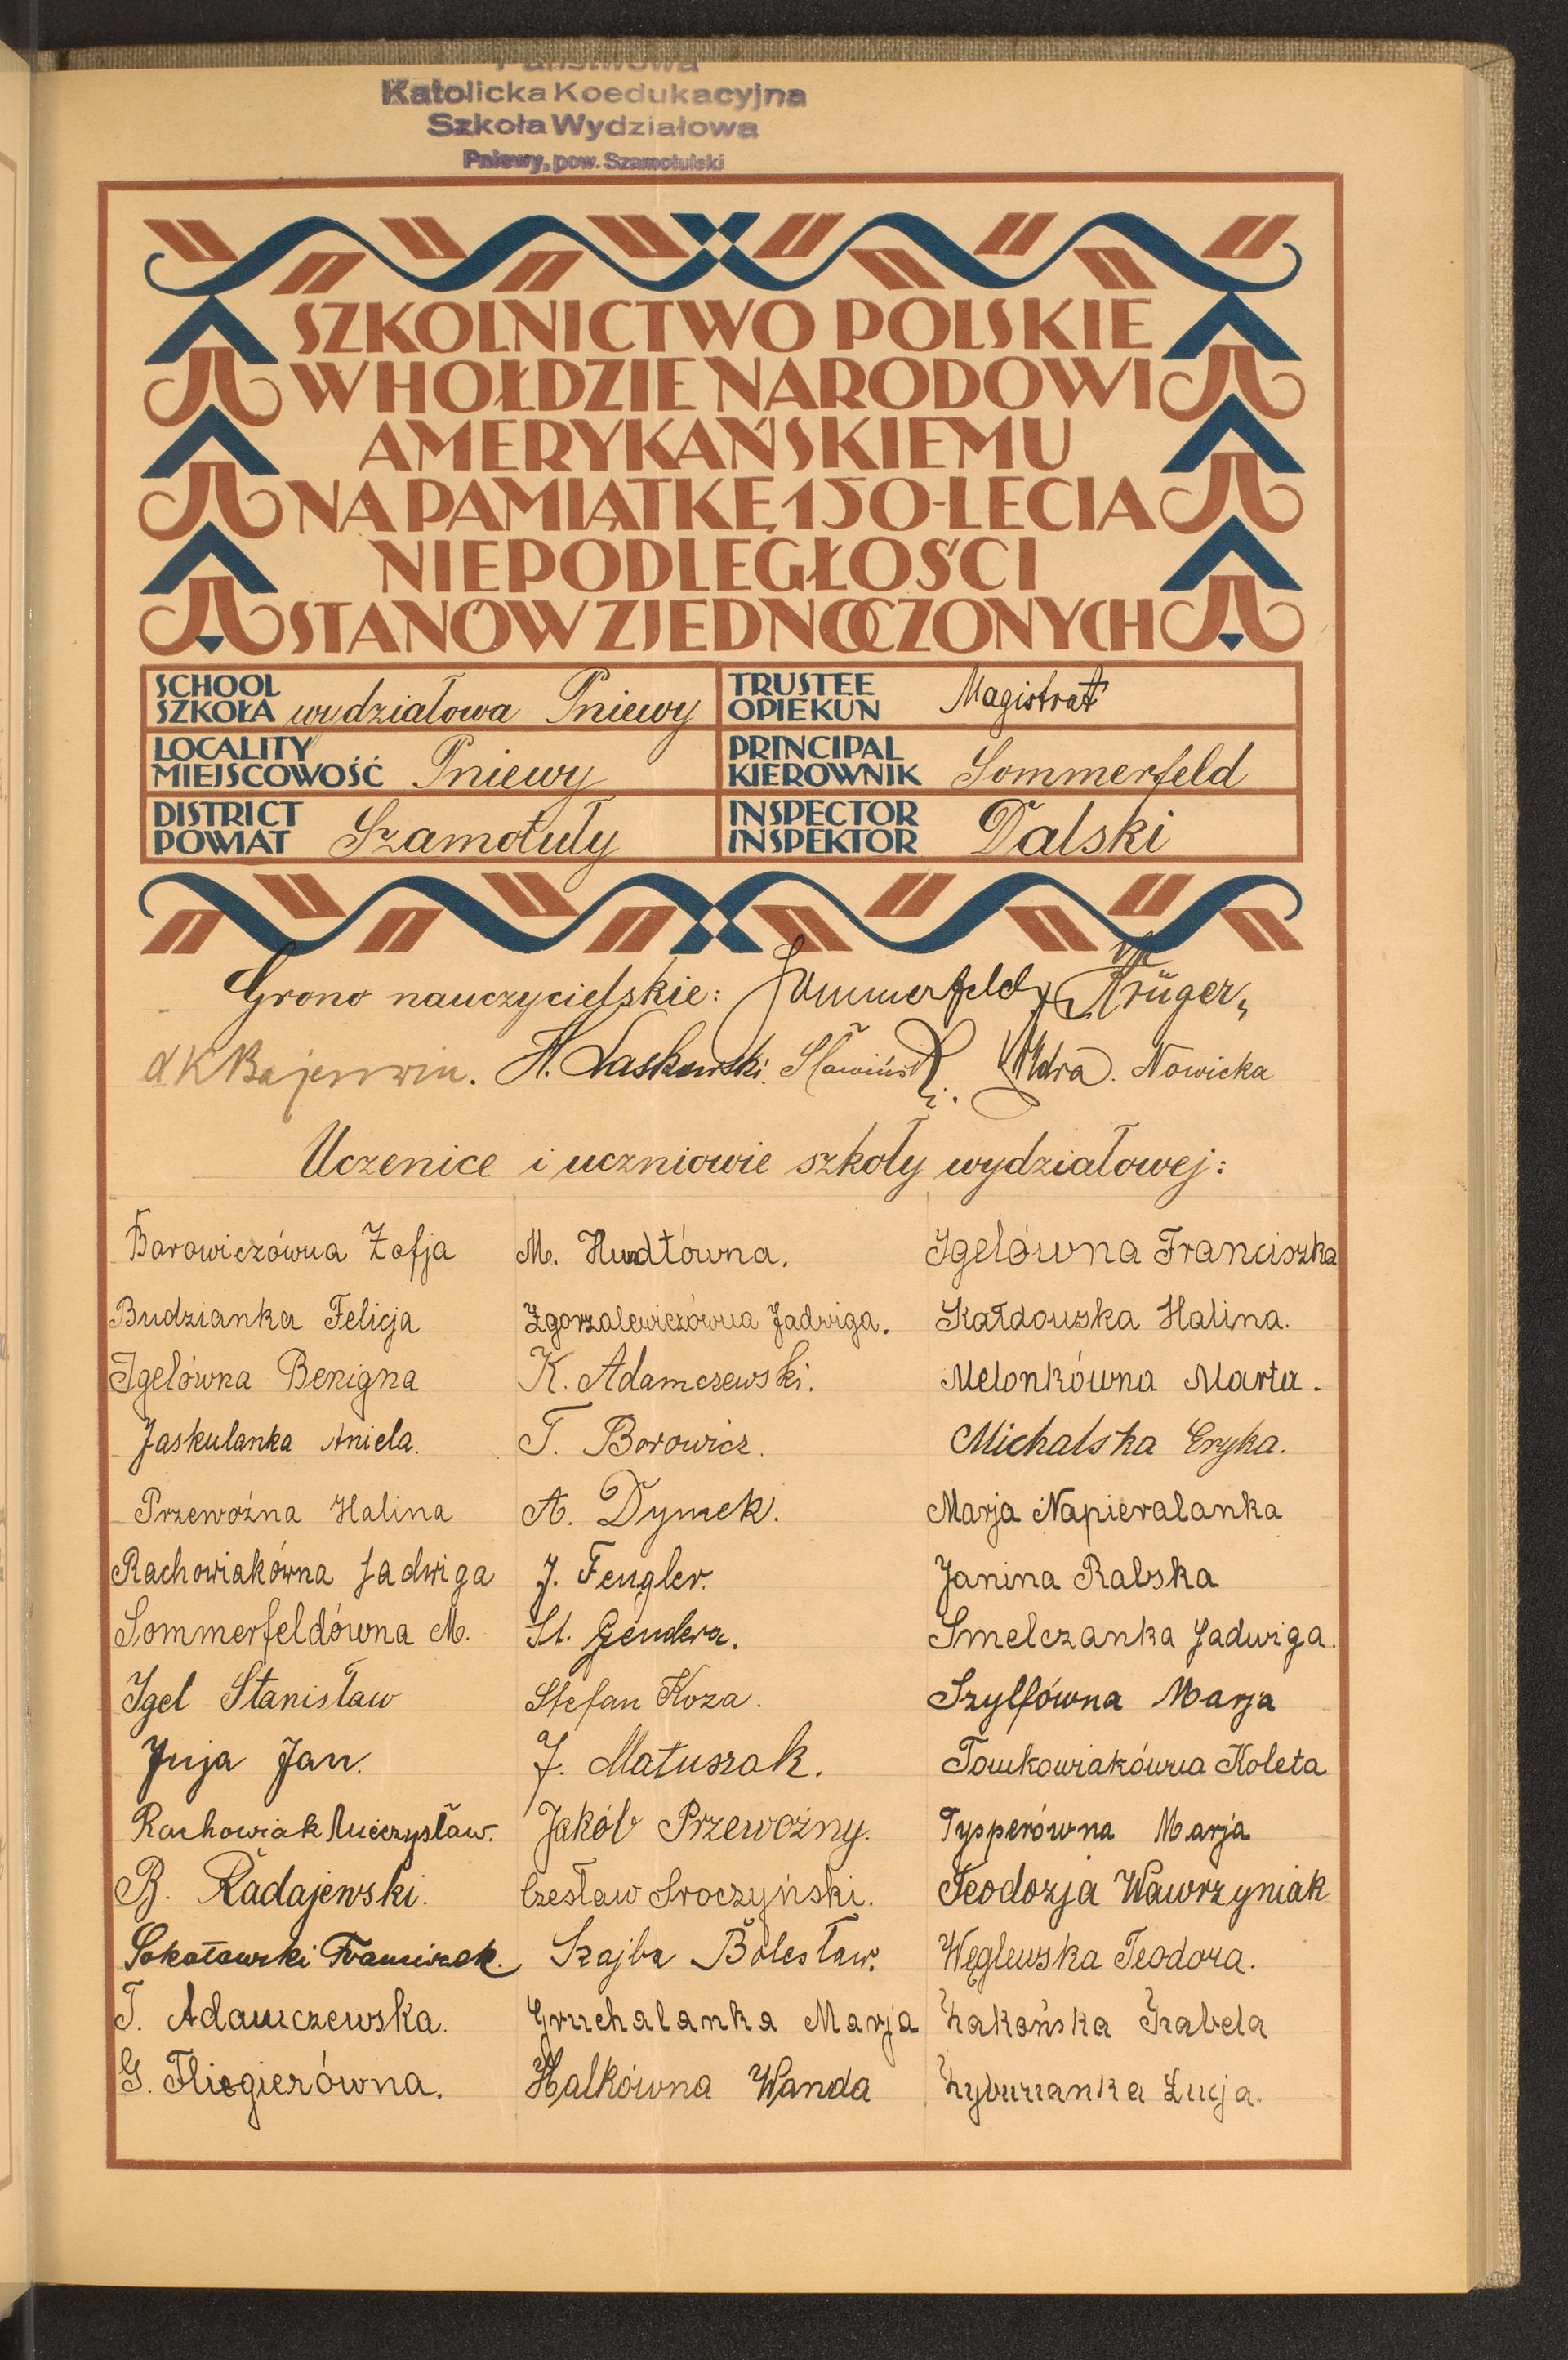 Państwowa
Katolicka Koedukacyjna
Szkoła Wydziałowa
Pniewy, pow. Szamotulski
SZKOLNICTWO POLSKIE
W HOŁDZIE NARODOWI
AMERYKAŃSKIEMU
NA PAMIĄTKĘ 150-LECIA
NIEPODLEGŁOŚCI
STANÓW ZJEDNOCZONYCH
SCHOOL
SZKOŁA wydziałowa Pniewy
TRUSTEE
OPIEKUN Magistrat
LOCALITY
MIEJSCOWOŚĆ Pniewy
PRINCIPAL
KIEROWNIK Sommerfeld
DISTRICT
POWIAT Szamotuły
INSPECTOR
INSPEKTOR Dalski
Grono nauczycielskie: Sommerfeld, Krüger,
H. Laskowski. Sławiński. Nowicka
Uczenice i uczniowie szkoły wydziałowej:
Borowiczówna Zofja
Budzianka Felicja
Igelówna Benigna
Jaskulanka Aniela.
Przewoźna Halina
Rachowiakówna Jadwiga
Sommerfeldówna M.
Igel Stanisław
Juja Jan.
Rachowiak Mieczysław.
B. Radajewski.
Sokołowski Franciszek.
T. Adamczewska.
G. Fliegierówna.
M. Hundtówna.
Zgorzalewiczówna Jadwiga.
K. Adamczewski.
T. Borowicz.
A. Dymek.
J. Fengler.
St. Gendera.
Stefan Koza.
J. Matuszak.
Jakób Przewoźny.
Czesław Sroczyński.
Szajba Bolesław.
Gruchalanka Marja
Halkówna Wanda
Igelówna Franciszka
Kałdouska Halina.
Melonkówna Marta.
Michalska Eryka.
Marja Napieralanka
Janina Rabska
Smelczanka Jadwiga.
Szylfówna Marja
Tomkowiakówna Koleta
Typperówna Marja
Teodozja Wawrzyniak
Węglewska Teodora.
Zakońska Izabela
Zyburzanka Łucja.